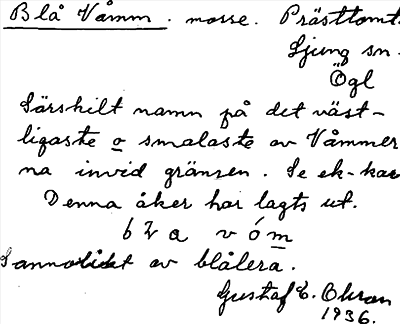 Blå Våmm. mosse. Prästtomt.
Ljung sn.
Ögl
Särskilt namn på det väst-
ligaste o smalaste av Våmmer
na invid gränsen. Se ek-kar
Denna åker har lagts ut.
bla vóm
Sannolikt av blålera.
Gustaf E.
1936.